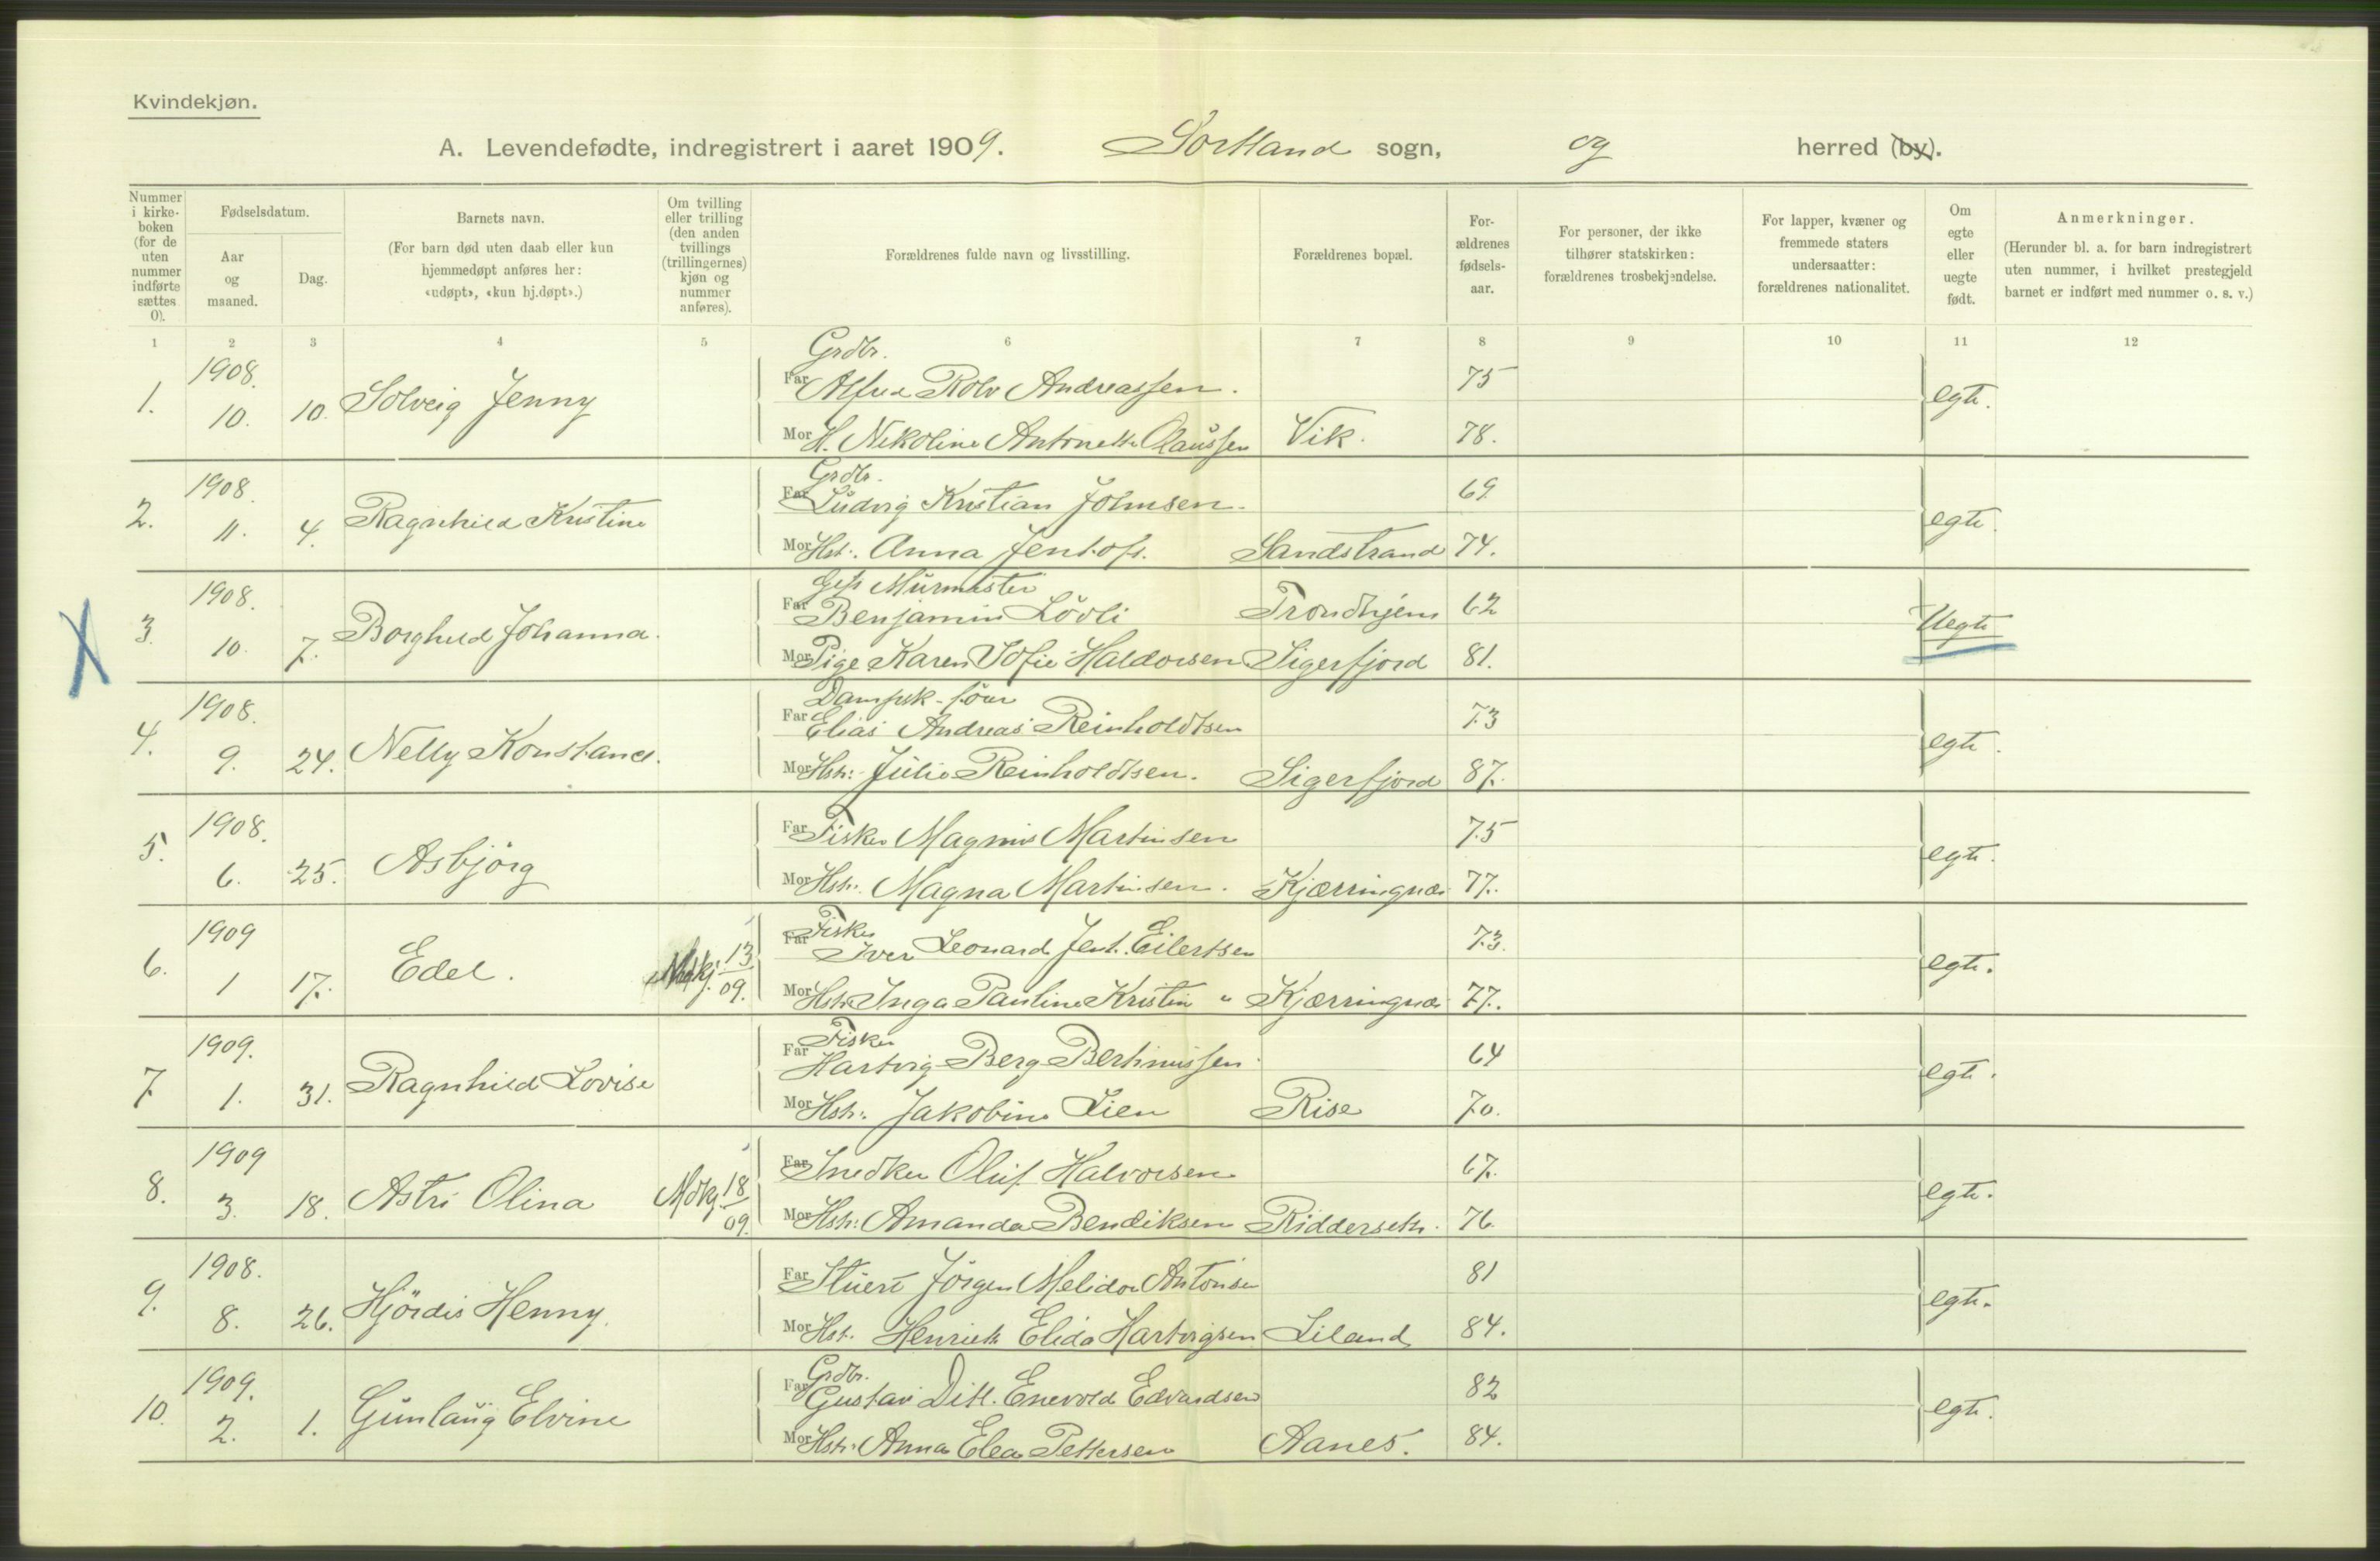 Kvindekjøn.
A. Levendefødte, indregistrert i aaret 1909. Sortland sogn, og herred (by).
Nummer i kirkeboken (for de uten nummer indførte sættes 0).
Fødselsdatum.
Aar og maaned.
Dag.
Barnets navn.
(For barn død uten daab eller kun hjemmedøpt anføres her: «udøpt», «kun hj.døpt».)
Om tvilling eller trilling (den anden tvillings (trillingernes) kjøn og nummer anføres).
Forældrenes fulde navn og livsstilling.
Forældrenes bopæl.
Forældrenes fødselsaar.
For personer, der ikke tilhører statskirken: forældrenes trosbekjendelse.
For lapper, kvæner og fremmede staters undersaatter: forældrenes nationalitet.
Om egte eller uegte født.
Anmerkninger.
(Herunder bl. a. for barn indregistrert uten nummer, i hvilket prestegjeld barnet er indført med nummer o. s. v.)
1 2 3 4 5 6 7 8 9 10 11 12
1. 1908. 10. 10. Solveig Jenny
Grdbr.
Far Alfred Rolv Andreassen. 75
Mor H. Nekoline Antonette Claussen Vik. 78. egte.
2. 1908. 11. 4. Ragnhild Kristine
Grdbr.
Far Ludvig Kristian Johnsen. 69
Mor Hst. Anna Jentofs. Sandstrand 74. egte.
3. 1908. 10. 7. Borghild Johanna.
Gift Murmester
Far Benjamin Lövli Trondhjem 62
Mor Pige Karen Sofie Haldorsen Sigerfjord 81. Uegte
4. 1908. 9. 24. Nelly Konstance.
Far Elias Andreas Reinholdtsen 73
Mor Hstr. Julie Reinholdtsen. Sigerfjord 87. egte.
5. 1908. 6. 25. Asbjörg
Far Fisker Magnus Martinsen 75
Mor Hstr. Magna Martinsen. Kjærringnæs 77. egte.
6. 1909 1 17. Edel. Mdkj. 13/09.
Fisker
Far Iver Leonard Jent. Eilertsen 73.
Mor Hstr. Inga Pauline Kristin " Kjærringnæs 77. egte.
7 1909. 1. 31. Ragnhild Lovise
Fisker
Far Hartvig Berg Bertinussen. 64
Mor Hstr. Jakobine Lien Rise 70. egte.
8. 1909 3. 18. Astri Olina Mdkj. 18/09.
Far Snedker Oluf Halvorsen 67.
Mor Hstr. Amanda Bendiksen Riddersetr. 76. egte.
9. 1908. 8. 26. Hjördis Henny.
Far Stuert Jörgen Melidor Antonsen 81
Mor Hst. Henriette Elida Hartvigsen Liland 84. egte.
10. 1909. 2. 1. Gunlaug Elvine
Grdbr.
Far Gustav Ditl. Enevold Edvardsen 82
Mor Hstr. Anna Elea Pettersen Aanes. 84. egte.